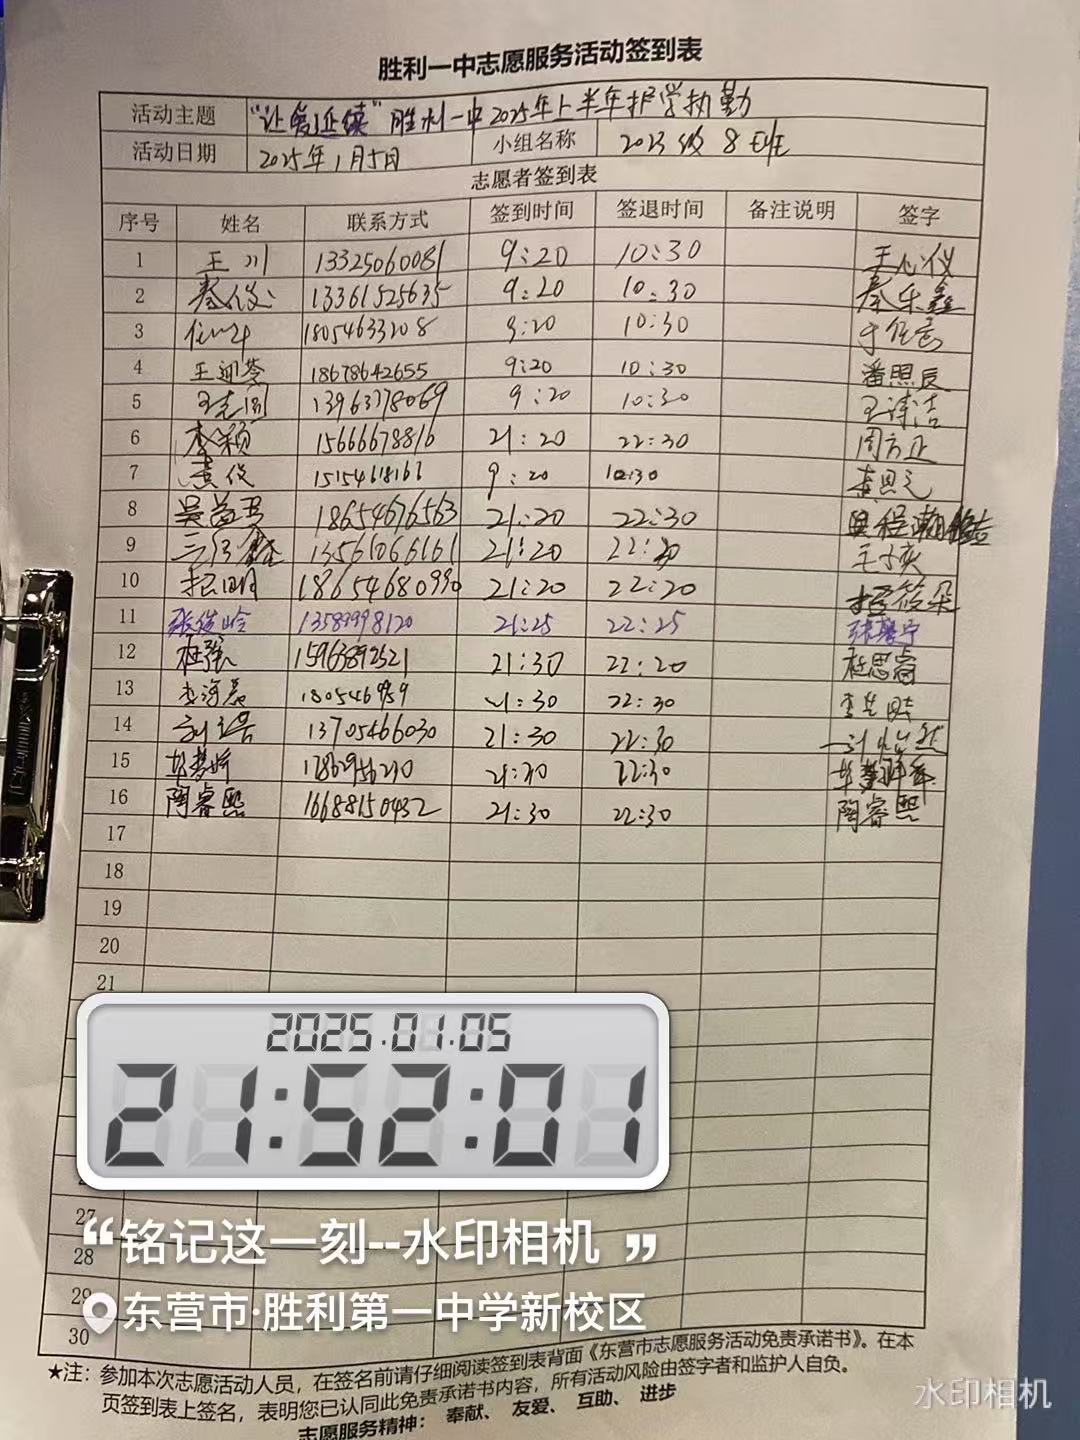 胜利一中志愿服务活动签到表
活动主题 "让爱延续"胜利一中2025年上半年护学执勤
活动日期 2025年1月5日 小组名称 2023级8班
志愿者签到表
序号 姓名 联系方式 签到时间 签退时间 备注说明 签字
1 王川 13325060081 9:20 10:30 王心仪
2 秦俊 13361525635 9:20 10:30 秦乐鑫
3 18054633208 9:20 10:30
4 王迎苓 18678642655 9:20 10:30 潘照辰
5 王志刚 13963778069 9:20 10:30 王诗洁
6 李颖 15666678816 21:20 22:30 周方正
7 袁俊 15154618166 9:20 10:30 袁思元
8 吴 18654676563 21:20 22:30
9 13561066161 21:20 22:20 王子奕
10 明 18654680990 21:20 22:20 筱朵
11 张俊岭 13589998120 21:25 22:25 张馨宁
12 杜强 15963892521 21:30 22:20 杜思睿
13 李海 180546989 21:30 22:30 李
14 刘 13705466030 21:30 22:30 刘怡然
15 胡梦婷 17862956290 21:30 22:30
16 陶睿熙 16688150432 21:30 22:30 陶睿熙
17
18
19
20
21
2025.01.05
21:52:01
27
“铭记这一刻--水印相机”
28
29
东营市·胜利第一中学新校区
30
★注：参加本次志愿活动人员，在签名前请仔细阅读签到表背面《东营市志愿服务活动免责承诺书》。在本
页签到表上签名，表明您已认同此免责承诺书内容，所有活动风险由签字者和监护人自负。
志愿服务精神： 奉献、 友爱、 互助、 进步
水印相机